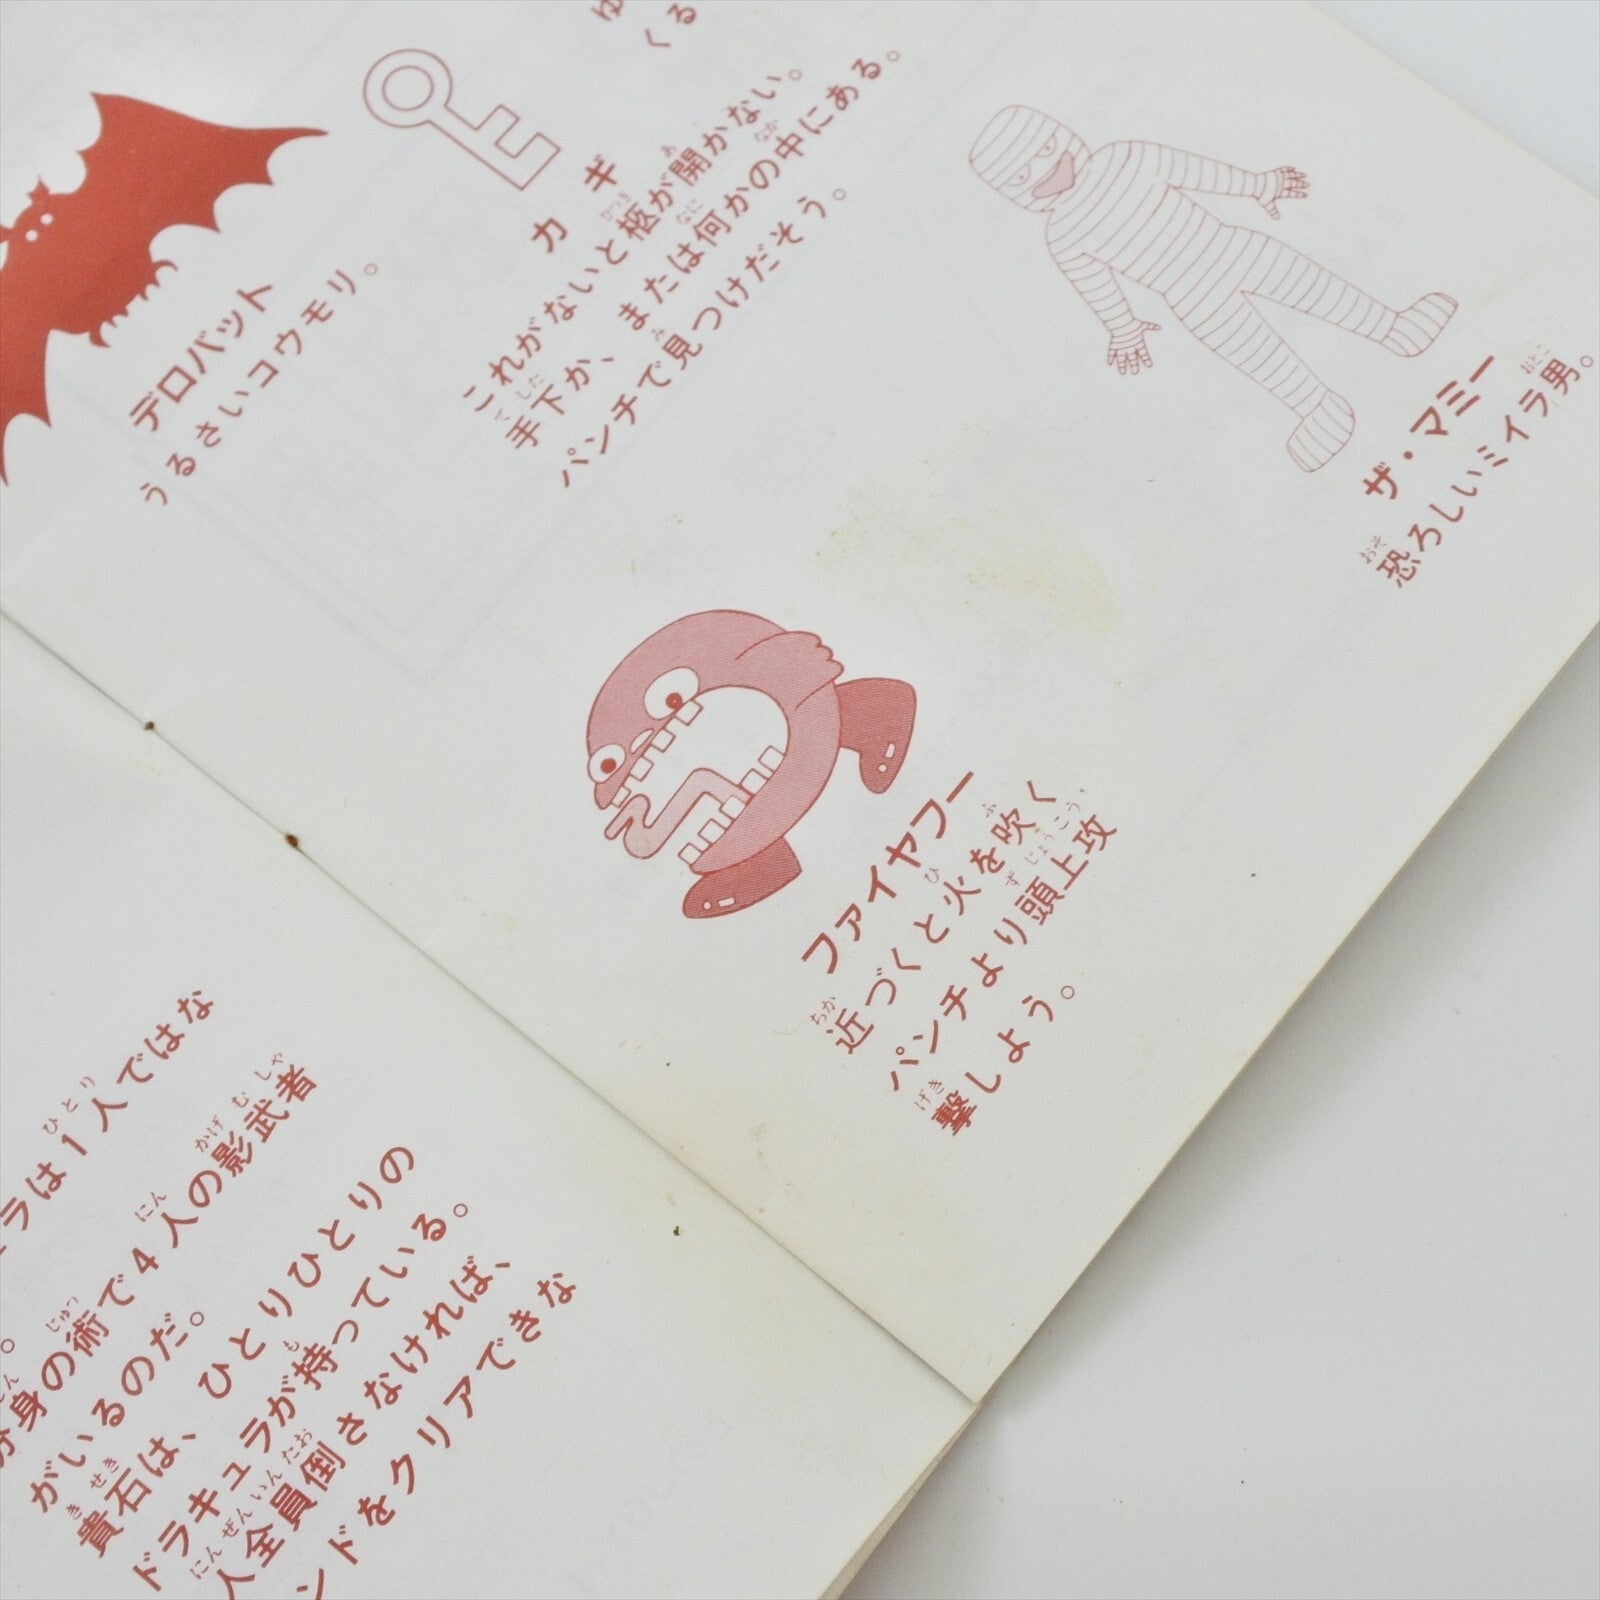 デロバット
うるさいコウモリ。
カギ
これがないと柩が開かない。
手下か、または何かの中にある。
パンチで見つけだそう。
ザ・マミー
恐ろしいミイラ男。
ファイヤフー
近づくと火を吹く
パンチより頭上攻
撃しよう。
ラは1人ではな
分身の術で4人の影武者
がいるのだ。
貴石は、ひとりひとりの
ドラキュラが持っている。
人全員倒さなければ、
ンドをクリアできな